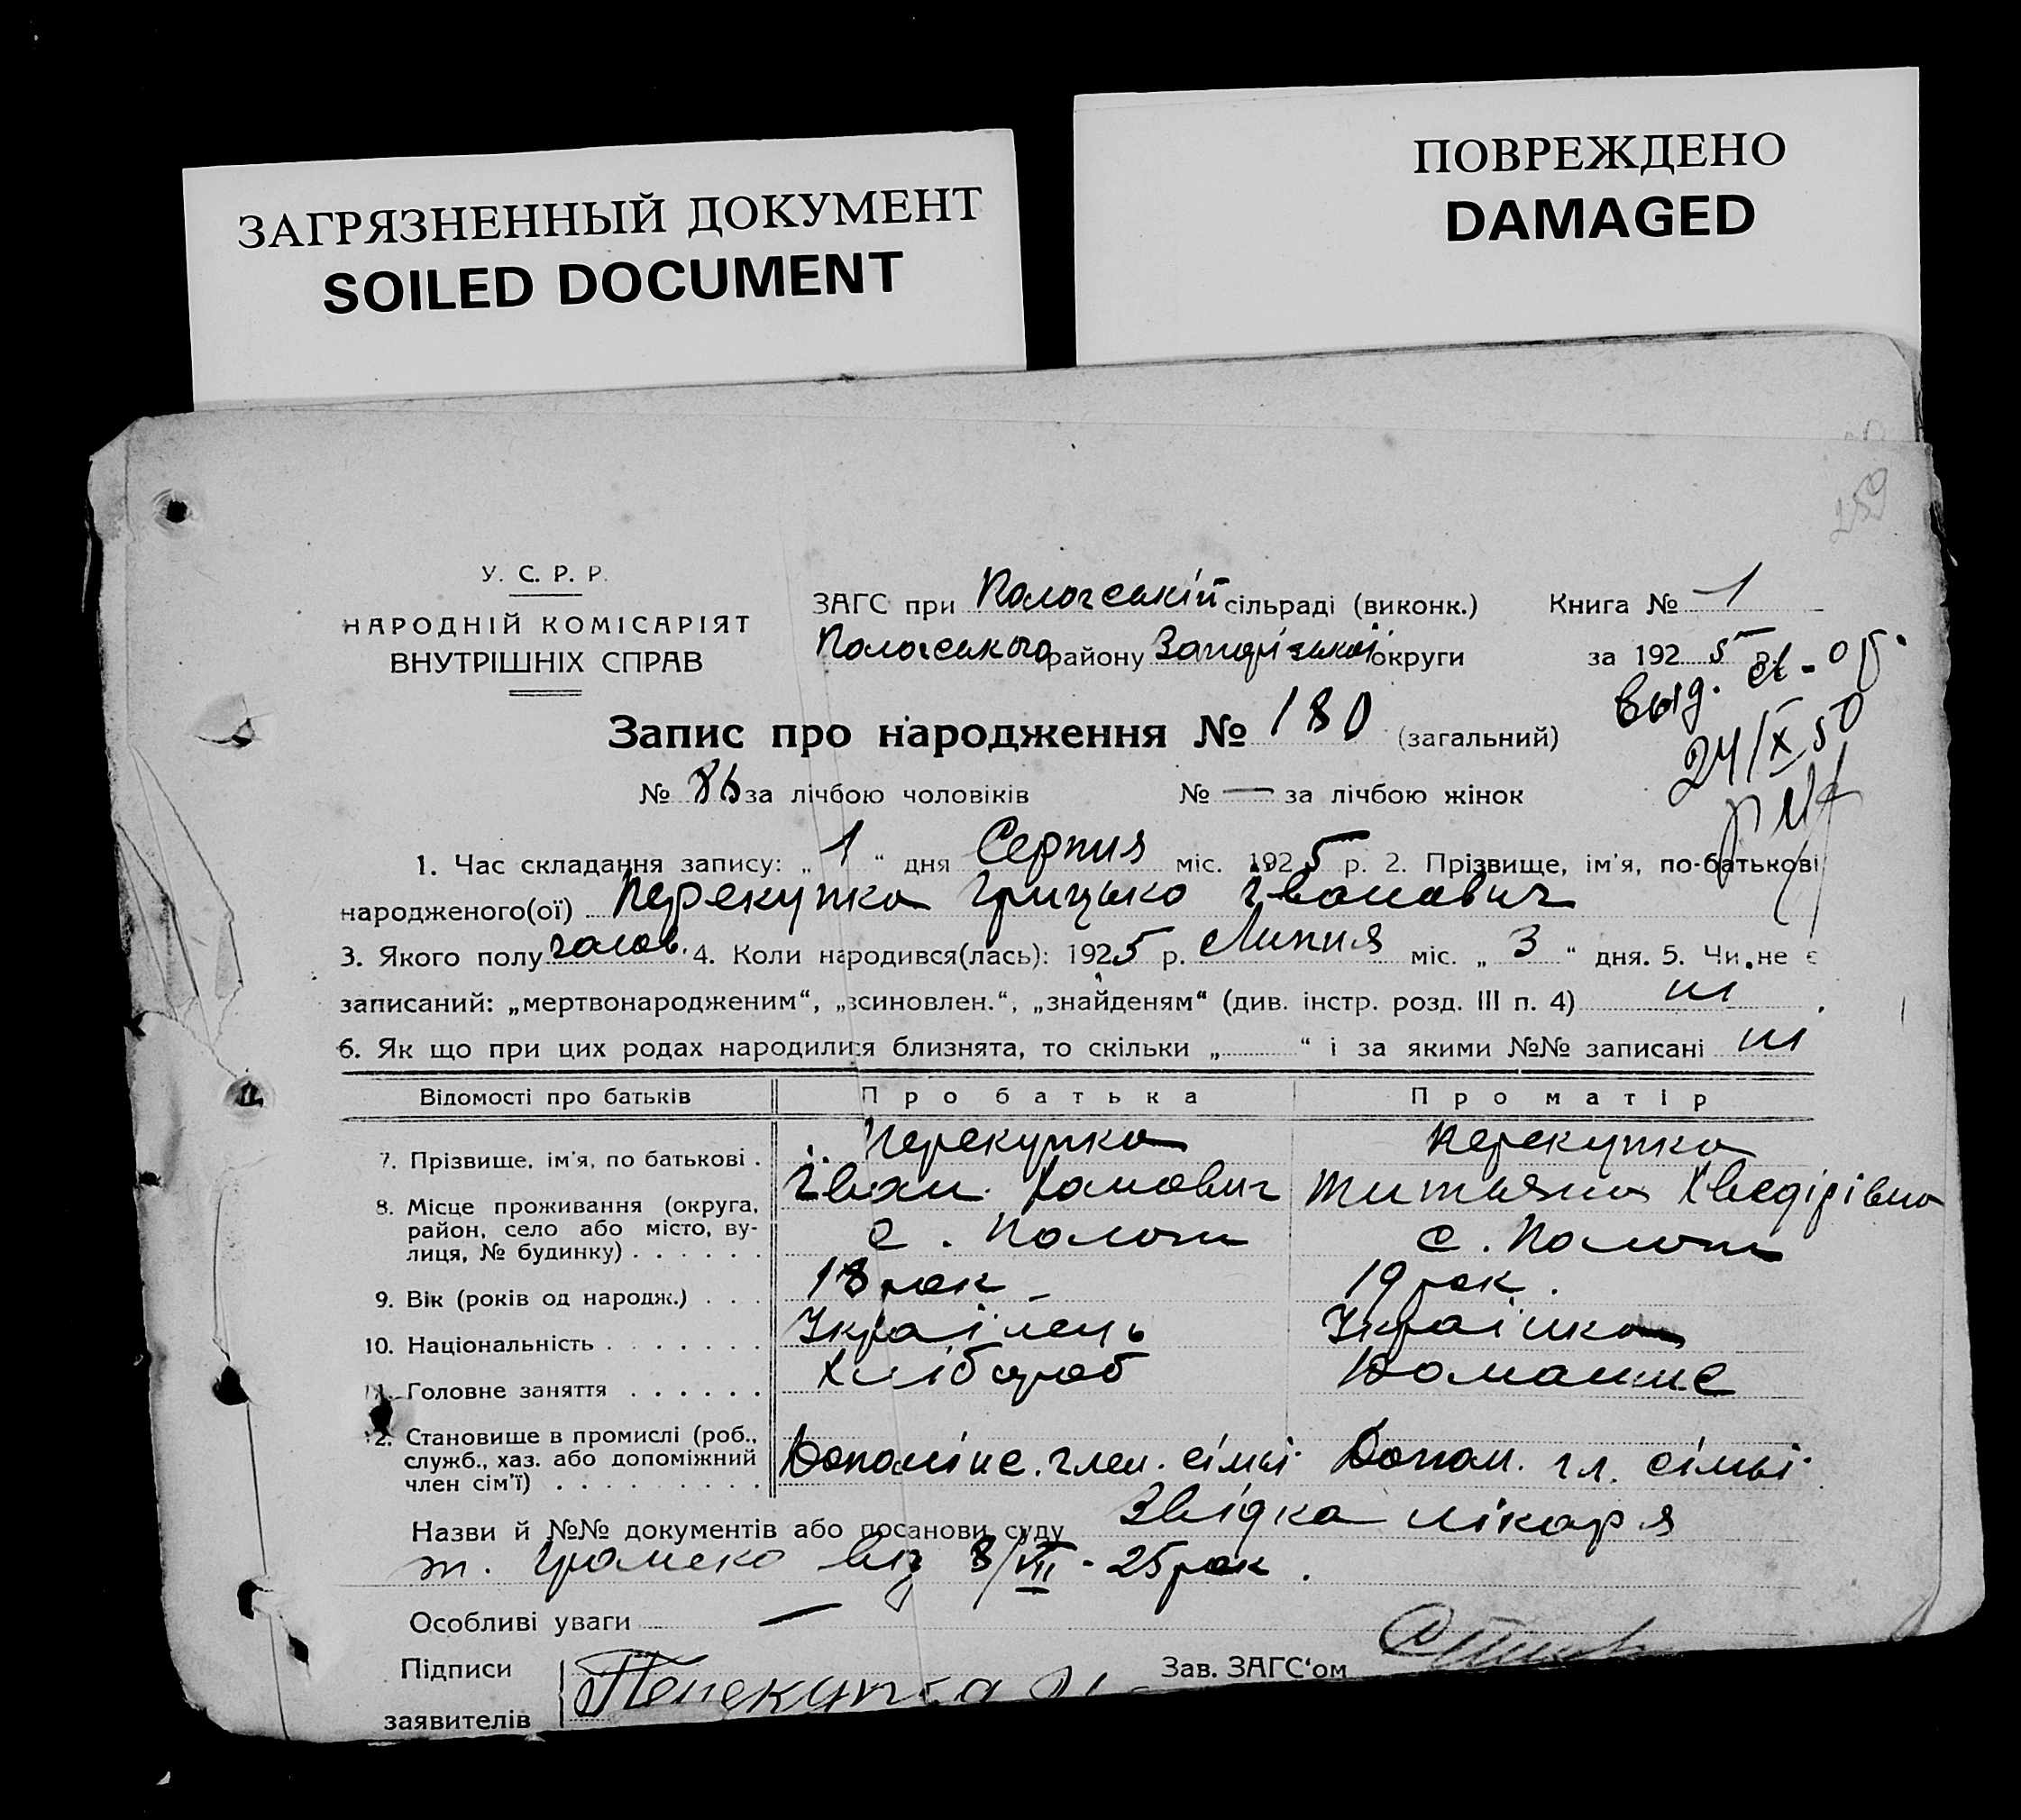 ЗАГРЯЗНЕННЫЙ ДОКУМЕНТ
SOILED DOCUMENT
ПОВРЕЖДЕНО
DAMAGED
259
У. С. Р. Р.
НАРОДНІЙ КОМІСАРІЯТ
ВНУТРІШНІХ СПРАВ
ЗАГС при Пологській сільраді (виконк.) Книга № 1
Пологського району Запорізької округи за 1925
выд. св-об.
24/X 50
Запис про народження № 180 (загальний)
№ 86 за лічбою чоловіків № — за лічбою жінок
1. Час складання запису: „1“ дня Серпня міс. 1925 р. 2. Прізвище, ім'я, по-батькові
народженого(ої) Перекупка Грицько Іванович
3. Якого полу чолов. 4. Коли народився(лась): 1925 р. Липня міс. „3“ дня. 5. Чи не є
записаний: „мертвонародженим“, „всиновлен.“, „знайденям“ (див. інстр. розд. III п. 4) ні
6. Як що при цих родах народилися близнята, то скільки „ “ і за якими №№ записані ні
Відомості про батьків Про батька Про матір
7. Прізвище, ім'я, по батькові . Перекупка Перекупка
Іван Хомович Титьяна Хведірівна
8. Місце проживання (округа,
район, село або місто, ву-
лиця, № будинку) . . . . . . с. Пологи с. Пологи
9. Вік (років од народж.) . . . 18 рок 19 рок.
10. Національність . . . . . . . Українець Українка
11. Головне заняття . . . . . . Хлібороб Домашнє
12. Становище в промислі (роб.,
служб., хаз. або допоміжний
член сім'ї) . . . . . . . . . Допоміне. член. сімьі Допом. чл. сімьі
Назви й №№ документів або посанови суду Звідка лікаря
т. Громеко від 3/VII - 25 рок.
Особливі уваги —
Підписи
заявителів Перекупка
Зав. ЗАГС'ом